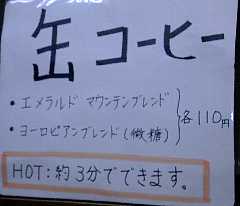 缶コーヒー
・エメラルド マウンテンブレンド
・ヨーロピアンブレンド(微糖)
各110円
HOT:約3分でできます。